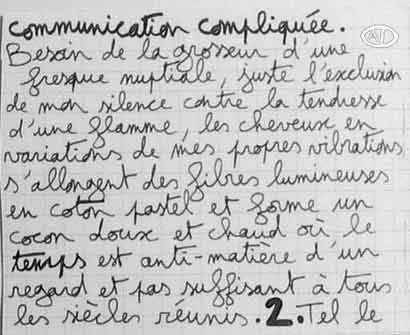 communication compliquée.
Besoin de la grosseur d'une
fresque nuptiale, juste l'exclusion
de mon silence contre la tendresse
d'une flamme, les cheveux en
variations de mes propres vibrations
s'allongent des fibres lumineuses
en coton pastel et forme un
cocon doux et chaud où le
temps est anti-matière d'un
regard et pas suffisant à tous
les siècles réunis. 2. Tel le